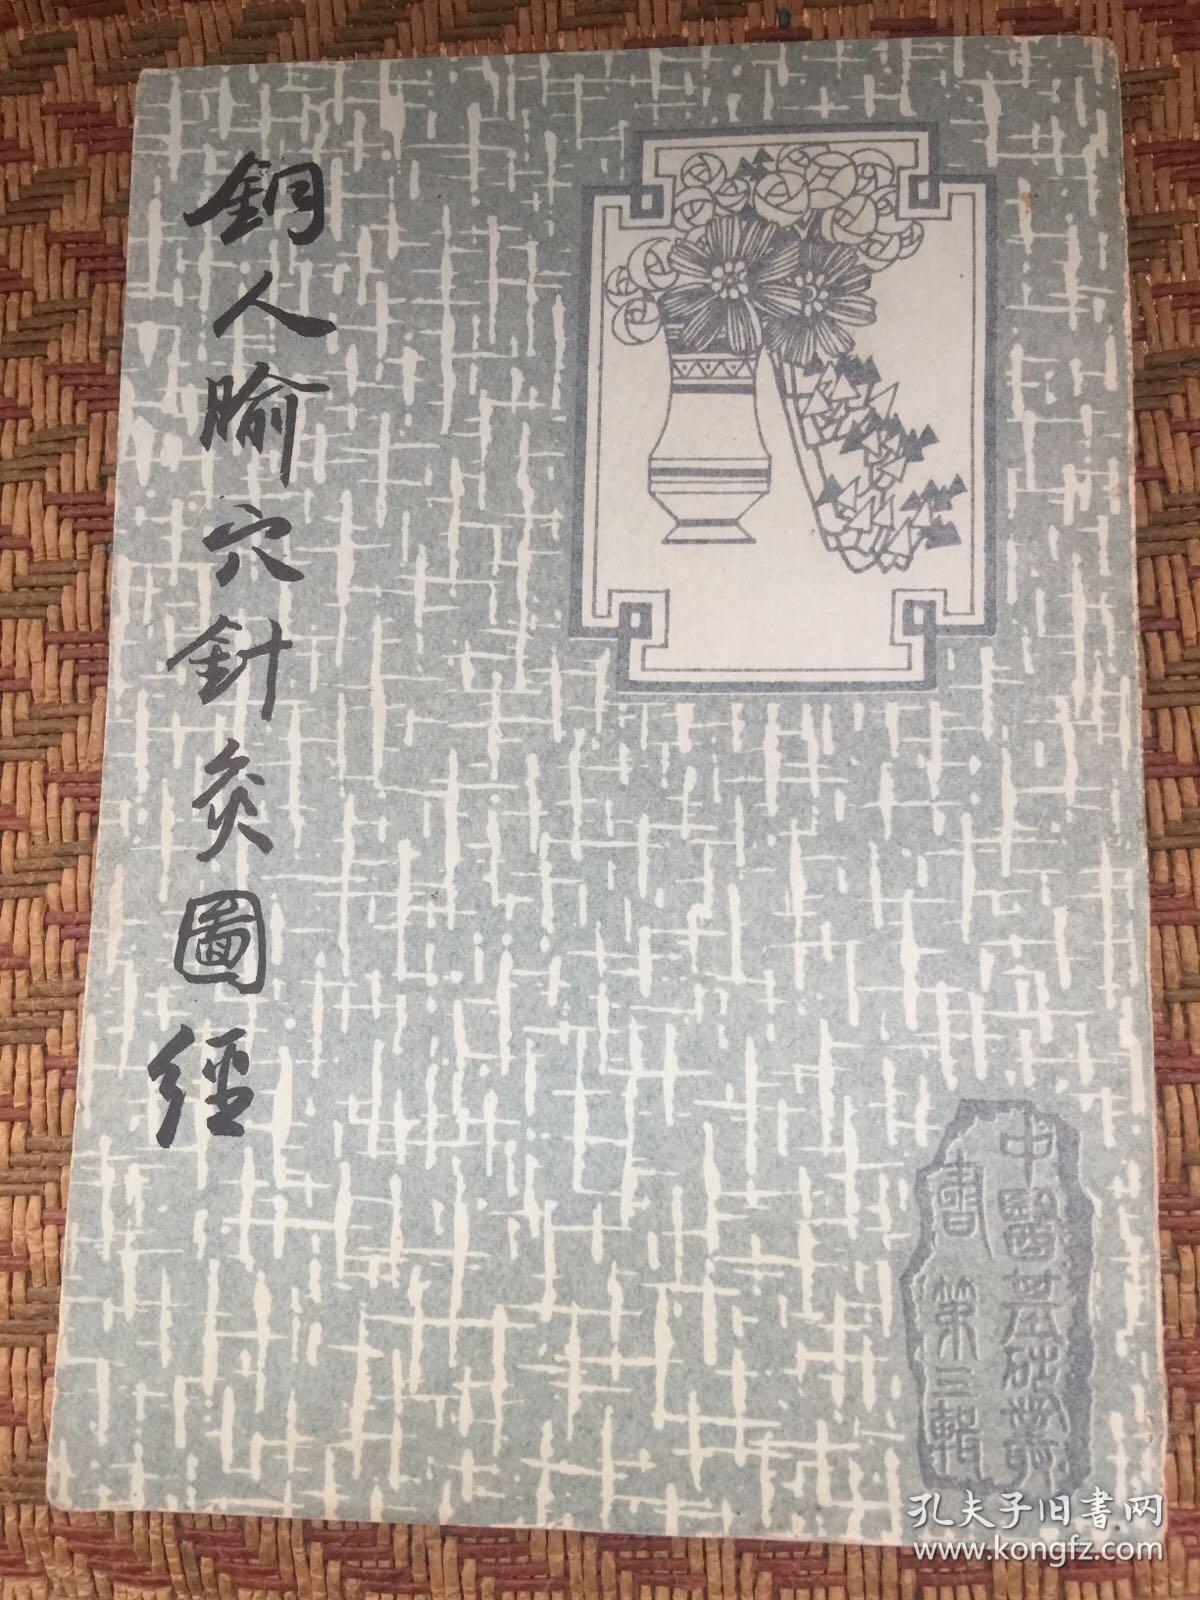 銅人腧穴針灸圖經
中醫基础叢
書 第三輯
孔夫子旧書网
www.kongfz.com